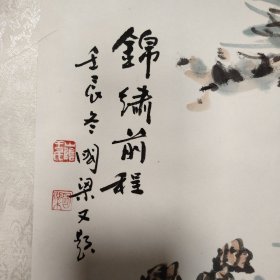 錦繡前程
壬辰冬國梁又題